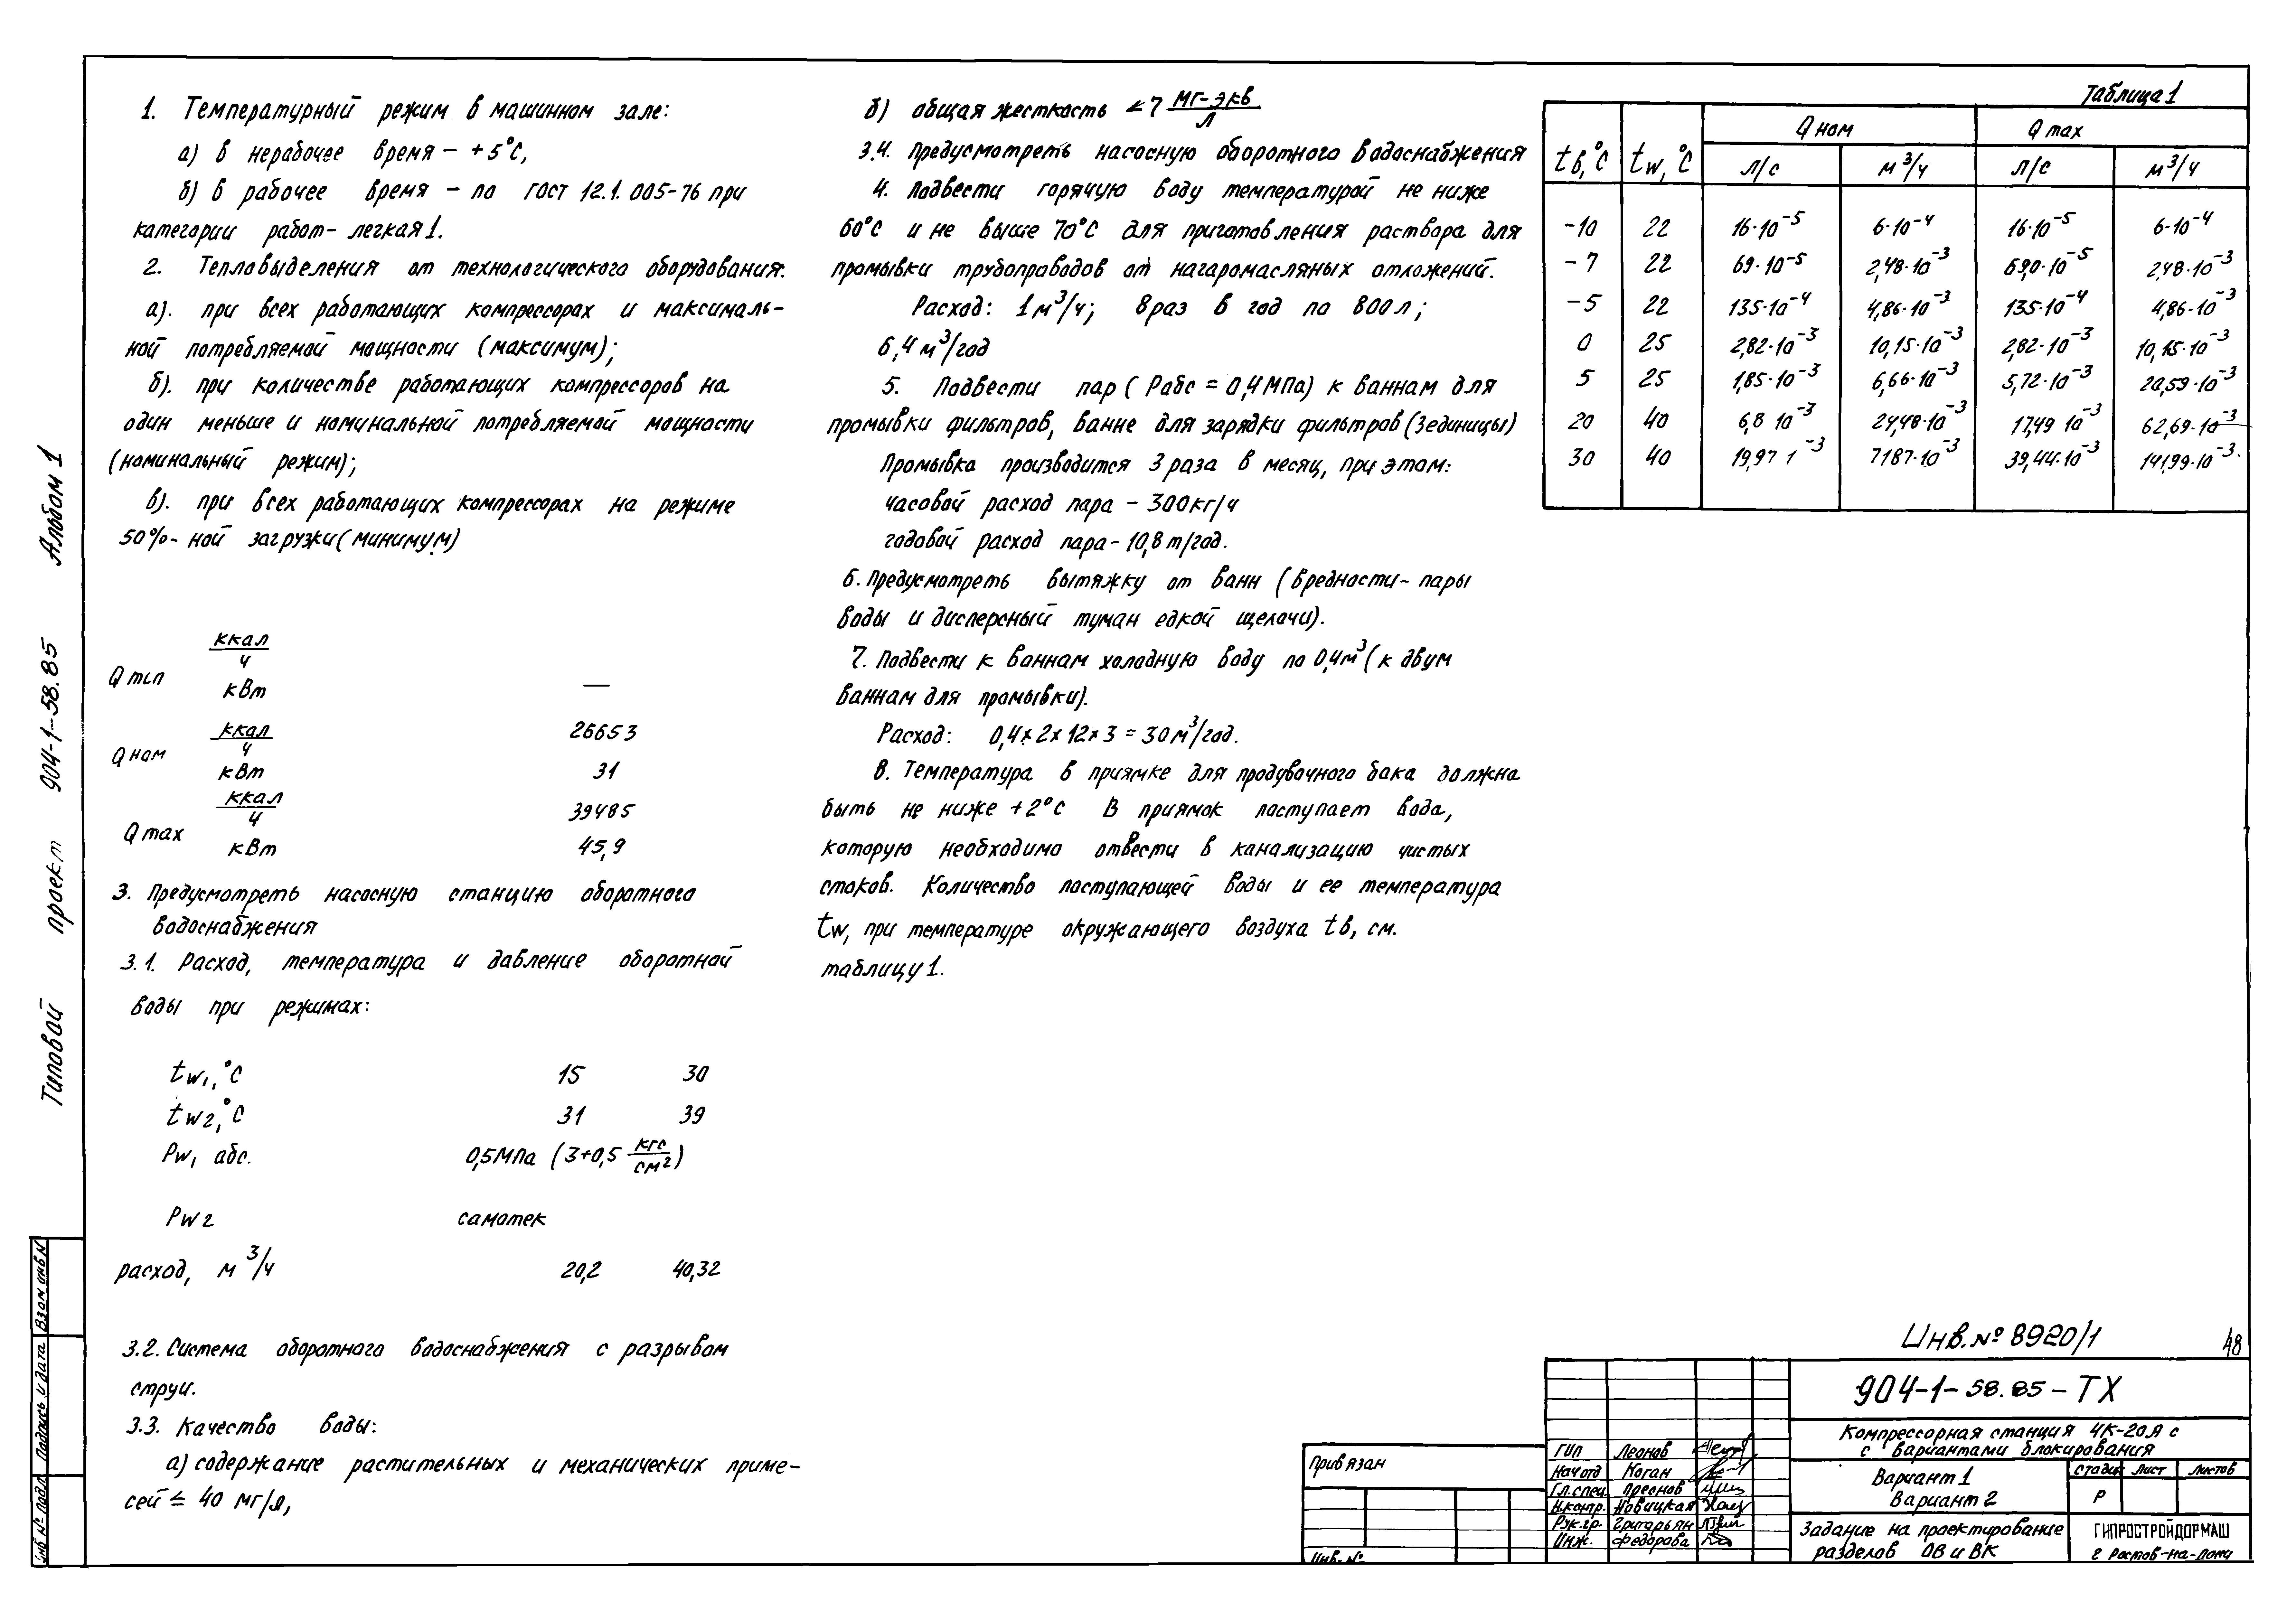 1. Температурный режим в машинном зале:
а) в нерабочее время - +5°С,
б) в рабочее время - по ГОСТ 12.1.005-76 при
категории работ - легкая 1.
2. Тепловыделения от технологического оборудования:
а). при всех работающих компрессорах и максималь-
ной потребляемой мощности (максимум);
б). при количестве работающих компрессоров на
один меньше и номинальной потребляемой мощности
(номинальный режим);
в). при всех работающих компрессорах на режиме
50%-ной загрузки (минимум)
Q min ккал/ч
кВт —
Q ном ккал/ч 26653
кВт 31
Q max ккал/ч 39485
кВт 45,9
3. Предусмотреть насосную станцию оборотного
водоснабжения
3.1. Расход, температура и давление оборотной
воды при режимах:
tw1, °С 15 30
tw2, °С 31 39
Pw1 абс. 0,5МПа (3+0,5 кгс/см²)
Pw2 самотек
расход, м³/ч 20,2 40,32
3.2. Система оборотного водоснабжения с разрывом
струи.
3.3. Качество воды:
а) содержание растительных и механических приме-
сей ≤ 40 мг/л,
б) общая жесткость ≤ 7 мг-экв/л
3.4. Предусмотреть насосную оборотного водоснабжения
4. Подвести горячую воду температурой не ниже
60°С и не выше 70°С для приготовления раствора для
промывки трубопроводов от нагаромасляных отложений.
Расход: 1 м³/ч; 8 раз в год по 800 л;
6,4 м³/год
5. Подвести пар (Рабс = 0,4 МПа) к ваннам для
промывки фильтров, ванне для зарядки фильтров (3 единицы)
Промывка производится 3 раза в месяц, при этом:
часовой расход пара - 300 кг/ч
годовой расход пара - 10,8 т/год.
6. Предусмотреть вытяжку от ванн (вредности - пары
воды и дисперсный туман едкой щелочи).
7. Подвести к ваннам холодную воду по 0,4 м³ (к двум
ваннам для промывки).
Расход: 0,4×2×12×3 = 30 м³/год.
8. Температура в приямке для продувочного бака должна
быть не ниже +2°С В приямок поступает вода,
которую необходимо отвести в канализацию чистых
стоков. Количество поступающей воды и ее температура
tw, при температуре окружающего воздуха tв, см.
таблицу 1.
Таблица 1
tв, °С tw, °С Q ном Q max
л/с м³/ч л/с м³/ч
-10 22 16·10⁻⁵ 6·10⁻⁴ 16·10⁻⁵ 6·10⁻⁴
-7 22 69·10⁻⁵ 2,48·10⁻³ 69,0·10⁻⁵ 2,48·10⁻³
-5 22 135·10⁻⁴ 4,86·10⁻³ 135·10⁻⁴ 4,86·10⁻³
0 25 2,82·10⁻³ 10,15·10⁻³ 2,82·10⁻³ 10,15·10⁻³
5 25 1,85·10⁻³ 6,66·10⁻³ 5,72·10⁻³ 20,59·10⁻³
20 40 6,8 10⁻³ 24,48·10⁻³ 17,49 10⁻³ 62,69·10⁻³
30 40 19,97 1⁻³ 7187·10⁻³ 39,44·10⁻³ 141,99·10⁻³
Типовой проект 904-1-58.85 Альбом 1
Взам инв N
Подпись и дата
Инв № подл.
Инв. № 8920/1 48
904-1-58.85-ТХ
Компрессорная станция 4К-20А с
с вариантами блокирования
Вариант 1
Вариант 2
Стадия Лист Листов
Р
Задание на проектирование
разделов ОВ и ВК
ГИПРОСТРОЙДОРМАШ
г Ростов-на-Дону
Привязан
Инв. №
ГИП Леонов
Нач отд Коган
Гл.спец. Преснов
Н.контр. Новицкая
Рук.гр. Григорьян
Инж. Федорова